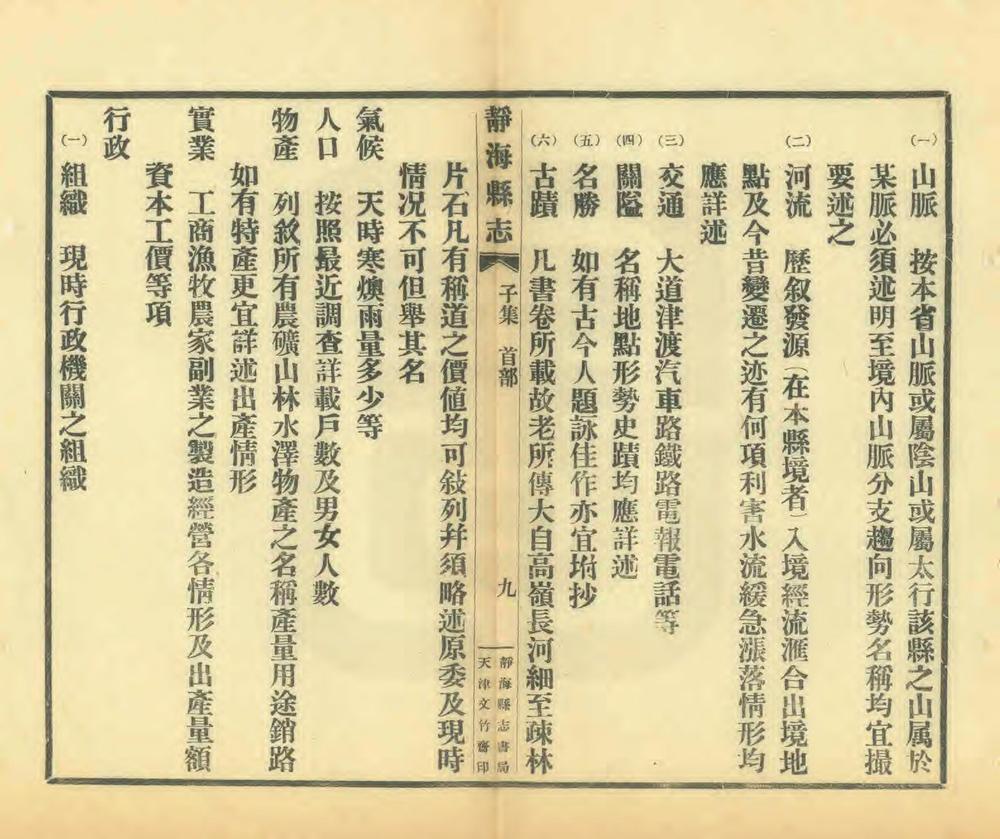 ㈠ 山脈 按本省山脈或屬陰山或屬太行該縣之山屬於
某脈必須述明至境內山脈分支趨向形勢名稱均宜撮
要述之
㈡ 河流 歷叙發源（在本縣境者）入境經流滙合出境地
點及今昔變遷之迹有何項利害水流緩急漲落情形均
應詳述
㈢ 交通 大道津渡汽車路鐵路電報電話等
㈣ 關隘 名稱地點形勢史蹟均應詳述
㈤ 名勝 如有古今人題詠佳作亦宜坿抄
㈥ 古蹟 凡書卷所載故老所傳大自高嶺長河細至疎林
靜海縣志 子集 首部 九 靜海縣志書局
天津文竹齋印
片石凡有稱道之價値均可敍列幷須略述原委及現時
情况不可但舉其名
氣候 天時寒燠雨量多少等
人口 按照最近調查詳載戶數及男女人數
物產 列敘所有農礦山林水澤物產之名稱產量用途銷路
如有特產更宜詳述出產情形
實業 工商漁牧農家副業之製造經營各情形及出產量額
資本工價等項
行政
㈠ 組織 現時行政機關之組織